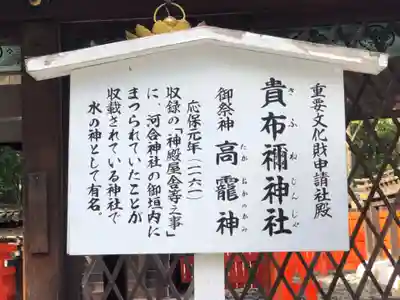 重要文化財申請社殿
貴布禰神社
きふねじんじゃ
御祭神 高龗神
たかおかのかみ
応保元年(一一六一)
収録の「神殿屋舎等之事」
に、河合神社の御垣内に
まつられていたことが
収載されている神社で
水の神として有名。